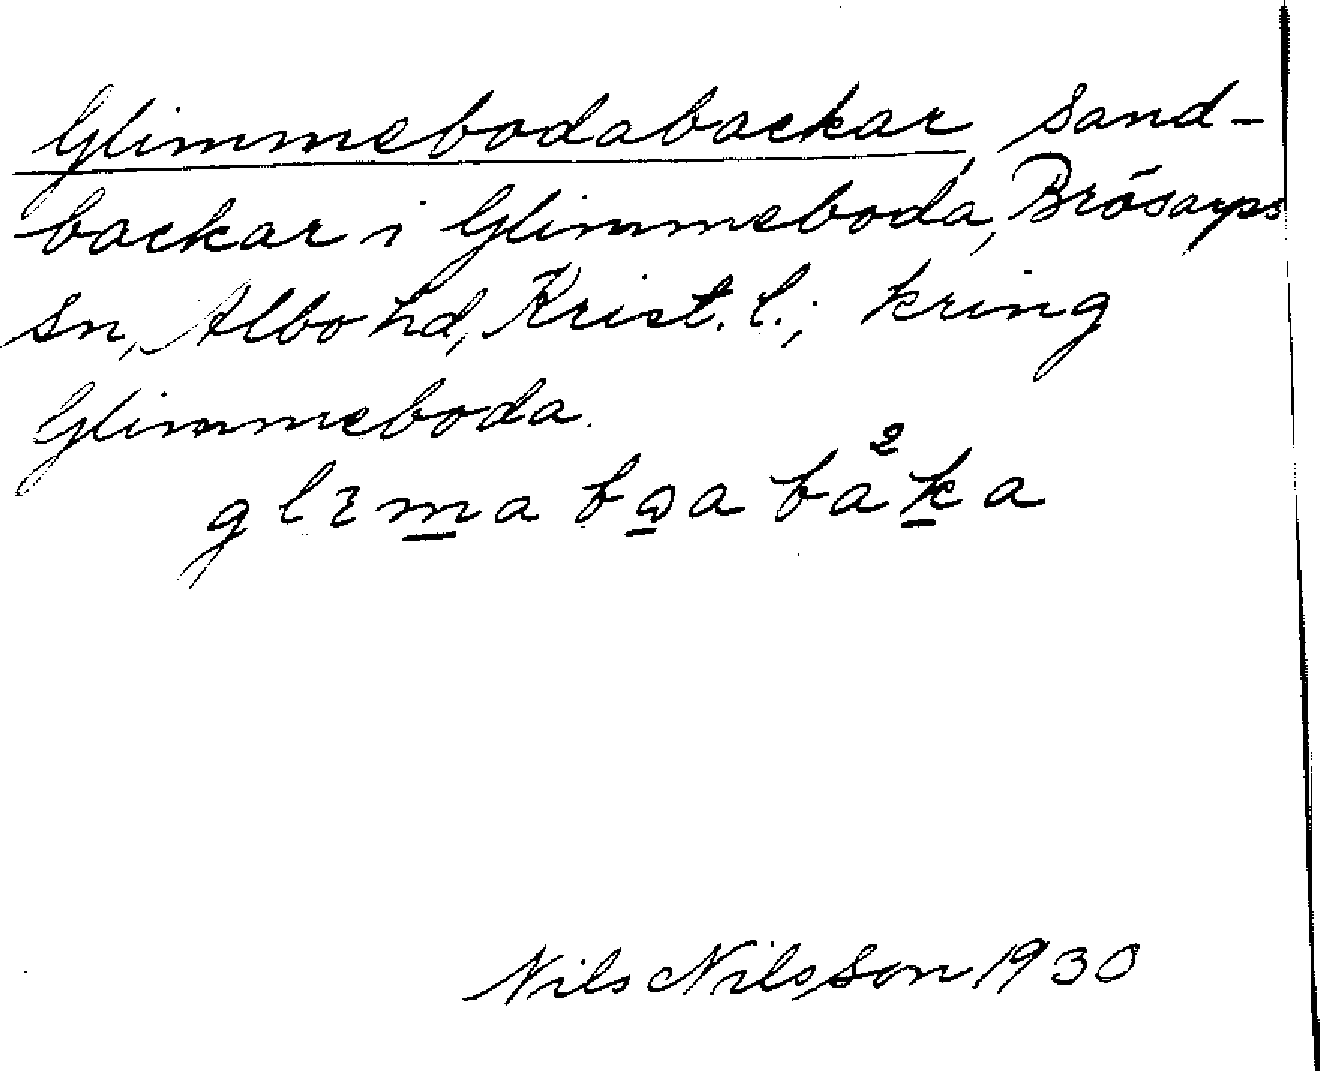 Glimmebodabackar, Sand-
backar i Glimmeboda, Brösarps
sn, Albo hd, Krist. l.; kring
Glimmeboda.
glɪm̲a bo̲a ba²k̲a
Nils Nilsson, 1930